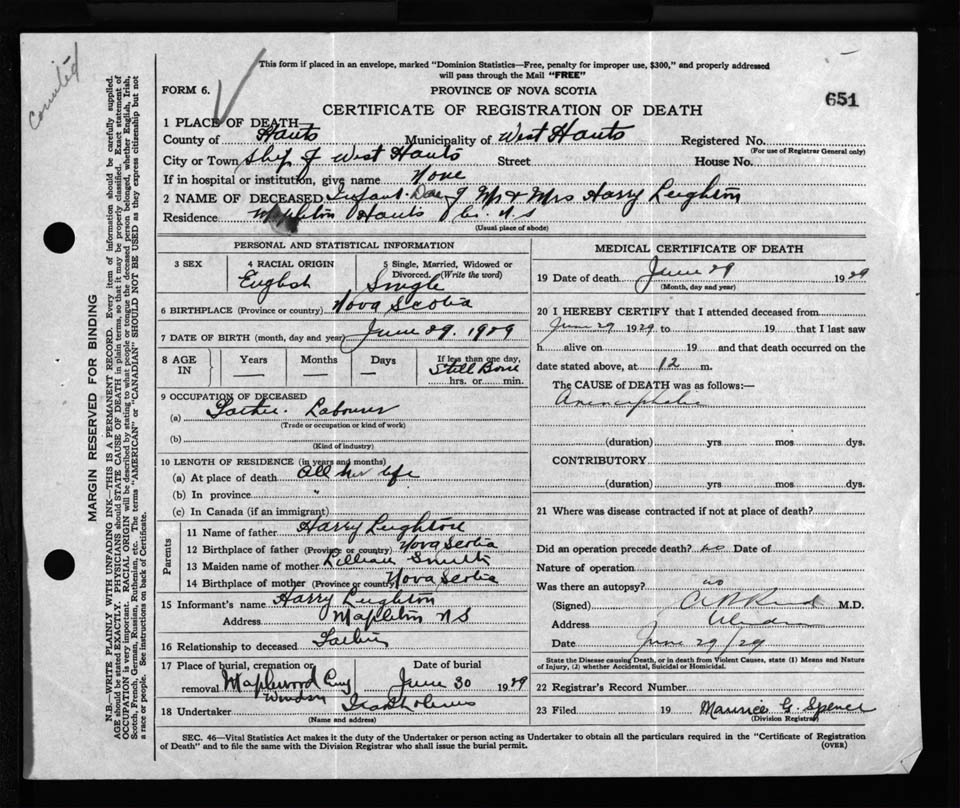 counted
This form if placed in an envelope, marked "Dominion Statistics—Free, penalty for improper use, $300," and properly addressed
will pass through the Mail "FREE"
FORM 6.
PROVINCE OF NOVA SCOTIA
651
CERTIFICATE OF REGISTRATION OF DEATH
1 PLACE OF DEATH—
County of Hants Municipality of West Hants Registered No.
(For use of Registrar General only)
City or Town Shep of West Hants Street House No.
If in hospital or institution, give name None
2 NAME OF DECEASED Infant Dau of Mr & Mrs Harry Leighton
Residence Mapleton Hants Co. N.S
(Usual place of abode)
PERSONAL AND STATISTICAL INFORMATION
3 SEX 4 RACIAL ORIGIN 5 Single, Married, Widowed or
Divorced. (Write the word)
English Single
6 BIRTHPLACE (Province or country) Nova Scotia
7 DATE OF BIRTH (month, day and year) June 29. 1929
8 AGE IN Years Months Days If less than one day,
Still Born
hrs. or min.
9 OCCUPATION OF DECEASED
(a) Father. Labourer
(Trade or occupation or kind of work)
(b)
(Kind of industry)
10 LENGTH OF RESIDENCE (in years and months)
(a) At place of death All her life
(b) In province "
(c) In Canada (if an immigrant)
Parents
11 Name of father Harry Leighton
12 Birthplace of father (Province or country) Nova Scotia
13 Maiden name of mother Lillian Smith
14 Birthplace of mother (Province or country) Nova Scotia
15 Informant's name Harry Leighton
Address Mapleton N S
16 Relationship to deceased Father
17 Place of burial, cremation or removal Date of burial
Maplewood Cemy Windsor June 30 1929
18 Undertaker
(Name and address)
MEDICAL CERTIFICATE OF DEATH
19 Date of death June 29 1929
(Month, day and year)
20 I HEREBY CERTIFY that I attended deceased from
June 29 1929 to 19 that I last saw
h alive on 19 and that death occurred on the
date stated above, at 12 m.
The CAUSE OF DEATH was as follows:—
Anencephalic
(duration) yrs mos dys.
CONTRIBUTORY
(duration) yrs mos dys.
21 Where was disease contracted if not at place of death?
Did an operation precede death? no Date of
Nature of operation
Was there an autopsy? no
(Signed) M.D.
Address
Date June 29/29
State the Disease causing Death, or in death from Violent Causes, state (1) Means and Nature
of Injury, (2) whether Accidental, Suicidal or Homicidal.
22 Registrar's Record Number
23 Filed 19 Maurice G. Spence
(Division Registrar)
SEC. 46—Vital Statistics Act makes it the duty of the Undertaker or person acting as Undertaker to obtain all the particulars required in the "Certificate of Registration
of Death" and to file the same with the Division Registrar who shall issue the burial permit.
(OVER)
MARGIN RESERVED FOR BINDING
N.B.—WRITE PLAINLY WITH UNFADING INK—THIS IS A PERMANENT RECORD. Every item of information should be carefully supplied.
AGE should be stated EXACTLY. PHYSICIANS should STATE CAUSE OF DEATH in plain terms, so that it may be properly classified. Exact statement of
OCCUPATION is very important. RACIAL ORIGIN will be described by stating to what people or tongue the deceased person belonged, whether English, Irish,
Scotch, French, German, Russian, Ruthenian, etc. The terms "AMERICAN" or "CANADIAN" SHOULD NOT BE USED as they express citizenship but not
a race or people. See instructions on back of Certificate.